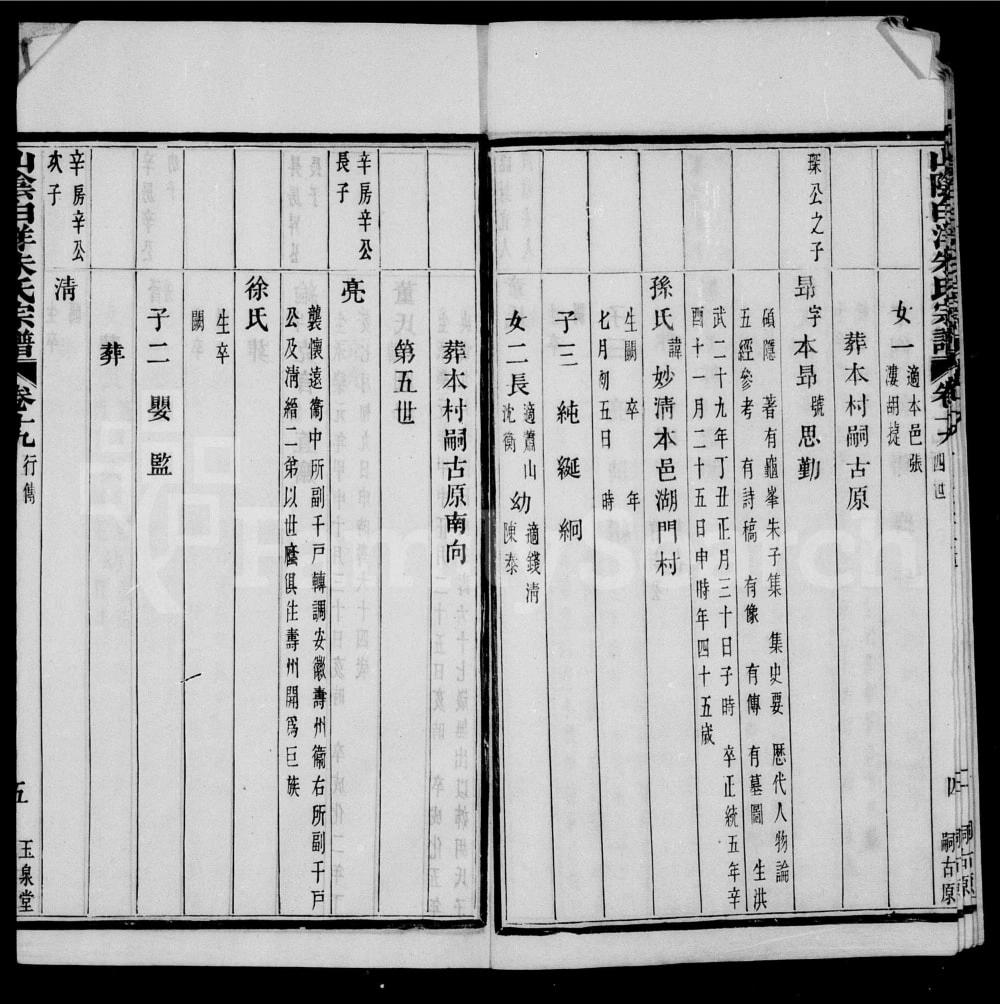 山陰白洋朱氏宗譜 卷十九 四世 四 嗣古原
女一 適本邑張漊胡㨗
葬本村嗣古原
琛公之子
昻 字本昻號思勤
碩隱 著有龜峯朱子集 集史要 歴代人物論
五經參考 有詩稿 有像 有傳 有墓圖 生洪
武二十九年丁丑正月三十日子時 卒正統五年辛
酉十一月二十五日申時年四十五歲
孫氏 諱妙淸本邑湖門村
生闕 卒 年
七月初五日 時
子三 純 綖 絅
女二 長 適蕭山沈衡 幼 適錢淸陳泰
葬本村嗣古原南向
第五世
辛房辛公長子
亮
襲懷遠衞中所副千戸轉調安徽壽州衞右所副千戸
公及淸縉二弟以世廕俱住壽州開爲巨族
徐氏
生卒闕
子二 嬰 監
葬
辛房辛公次子
淸
山陰白洋朱氏宗譜 卷十九 行傳 五 玉泉堂